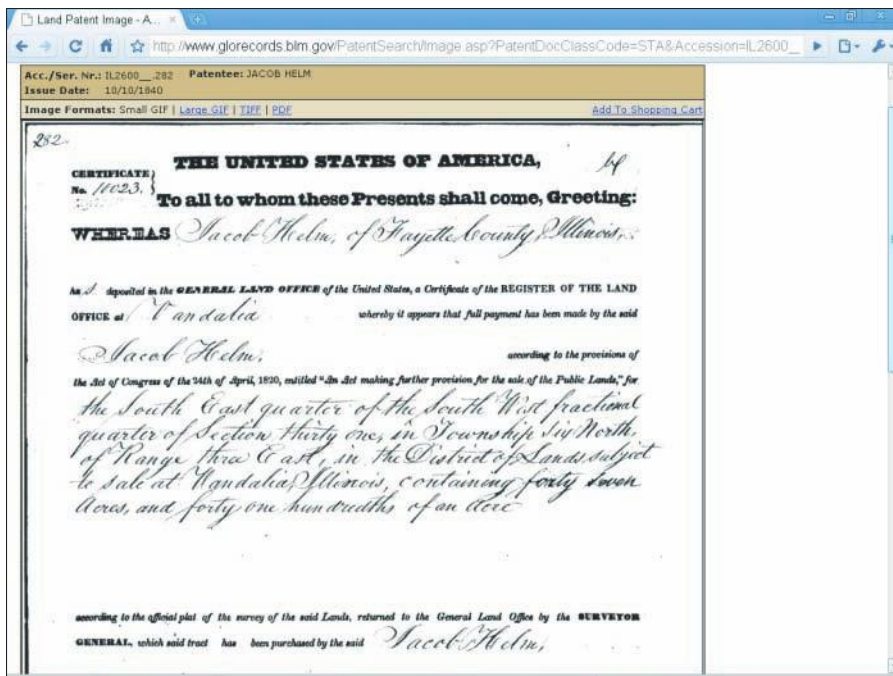 Land Patent Image - A...
http://www.glorecords.blm.gov/PatentSearch/Image.asp?PatentDocClassCode=STA&Accession=IL2600__
Acc./Ser. Nr.: IL2600__.282 Patentee: JACOB HELM
Issue Date: 10/10/1840
Image Formats: Small GIF | Large GIF | TIFF | PDF Add To Shopping Cart
282
THE UNITED STATES OF AMERICA,
CERTIFICATE
No. 11023.
To all to whom these Presents shall come, Greeting:
WHEREAS Jacob Helm, of Fayette County, Illinois,
ha s deposited in the GENERAL LAND OFFICE of the United States, a Certificate of the REGISTER OF THE LAND
OFFICE at Vandalia whereby it appears that full payment has been made by the said
Jacob Helm, according to the provisions of
the Act of Congress of the 24th of April, 1820, entitled "An Act making further provision for the sale of the Public Lands," for
the South East quarter of the South West fractional
quarter of Section thirty one, in Township Six North,
of Range three East, in the District of Lands subject
to sale at Vandalia, Illinois, containing forty seven
Acres, and forty one hundredths of an Acre
according to the official plat of the survey of the said Lands, returned to the General Land Office by the SURVEYOR
GENERAL, which said tract has been purchased by the said Jacob Helm,